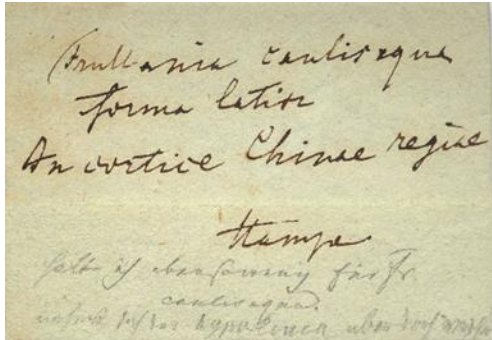 Frullania caulisequa
forma latior
An cortice Chinae regiae
Hampe
halte ich ebensowenig für Fr.
caulisequa.
der hypoleuca aber doch